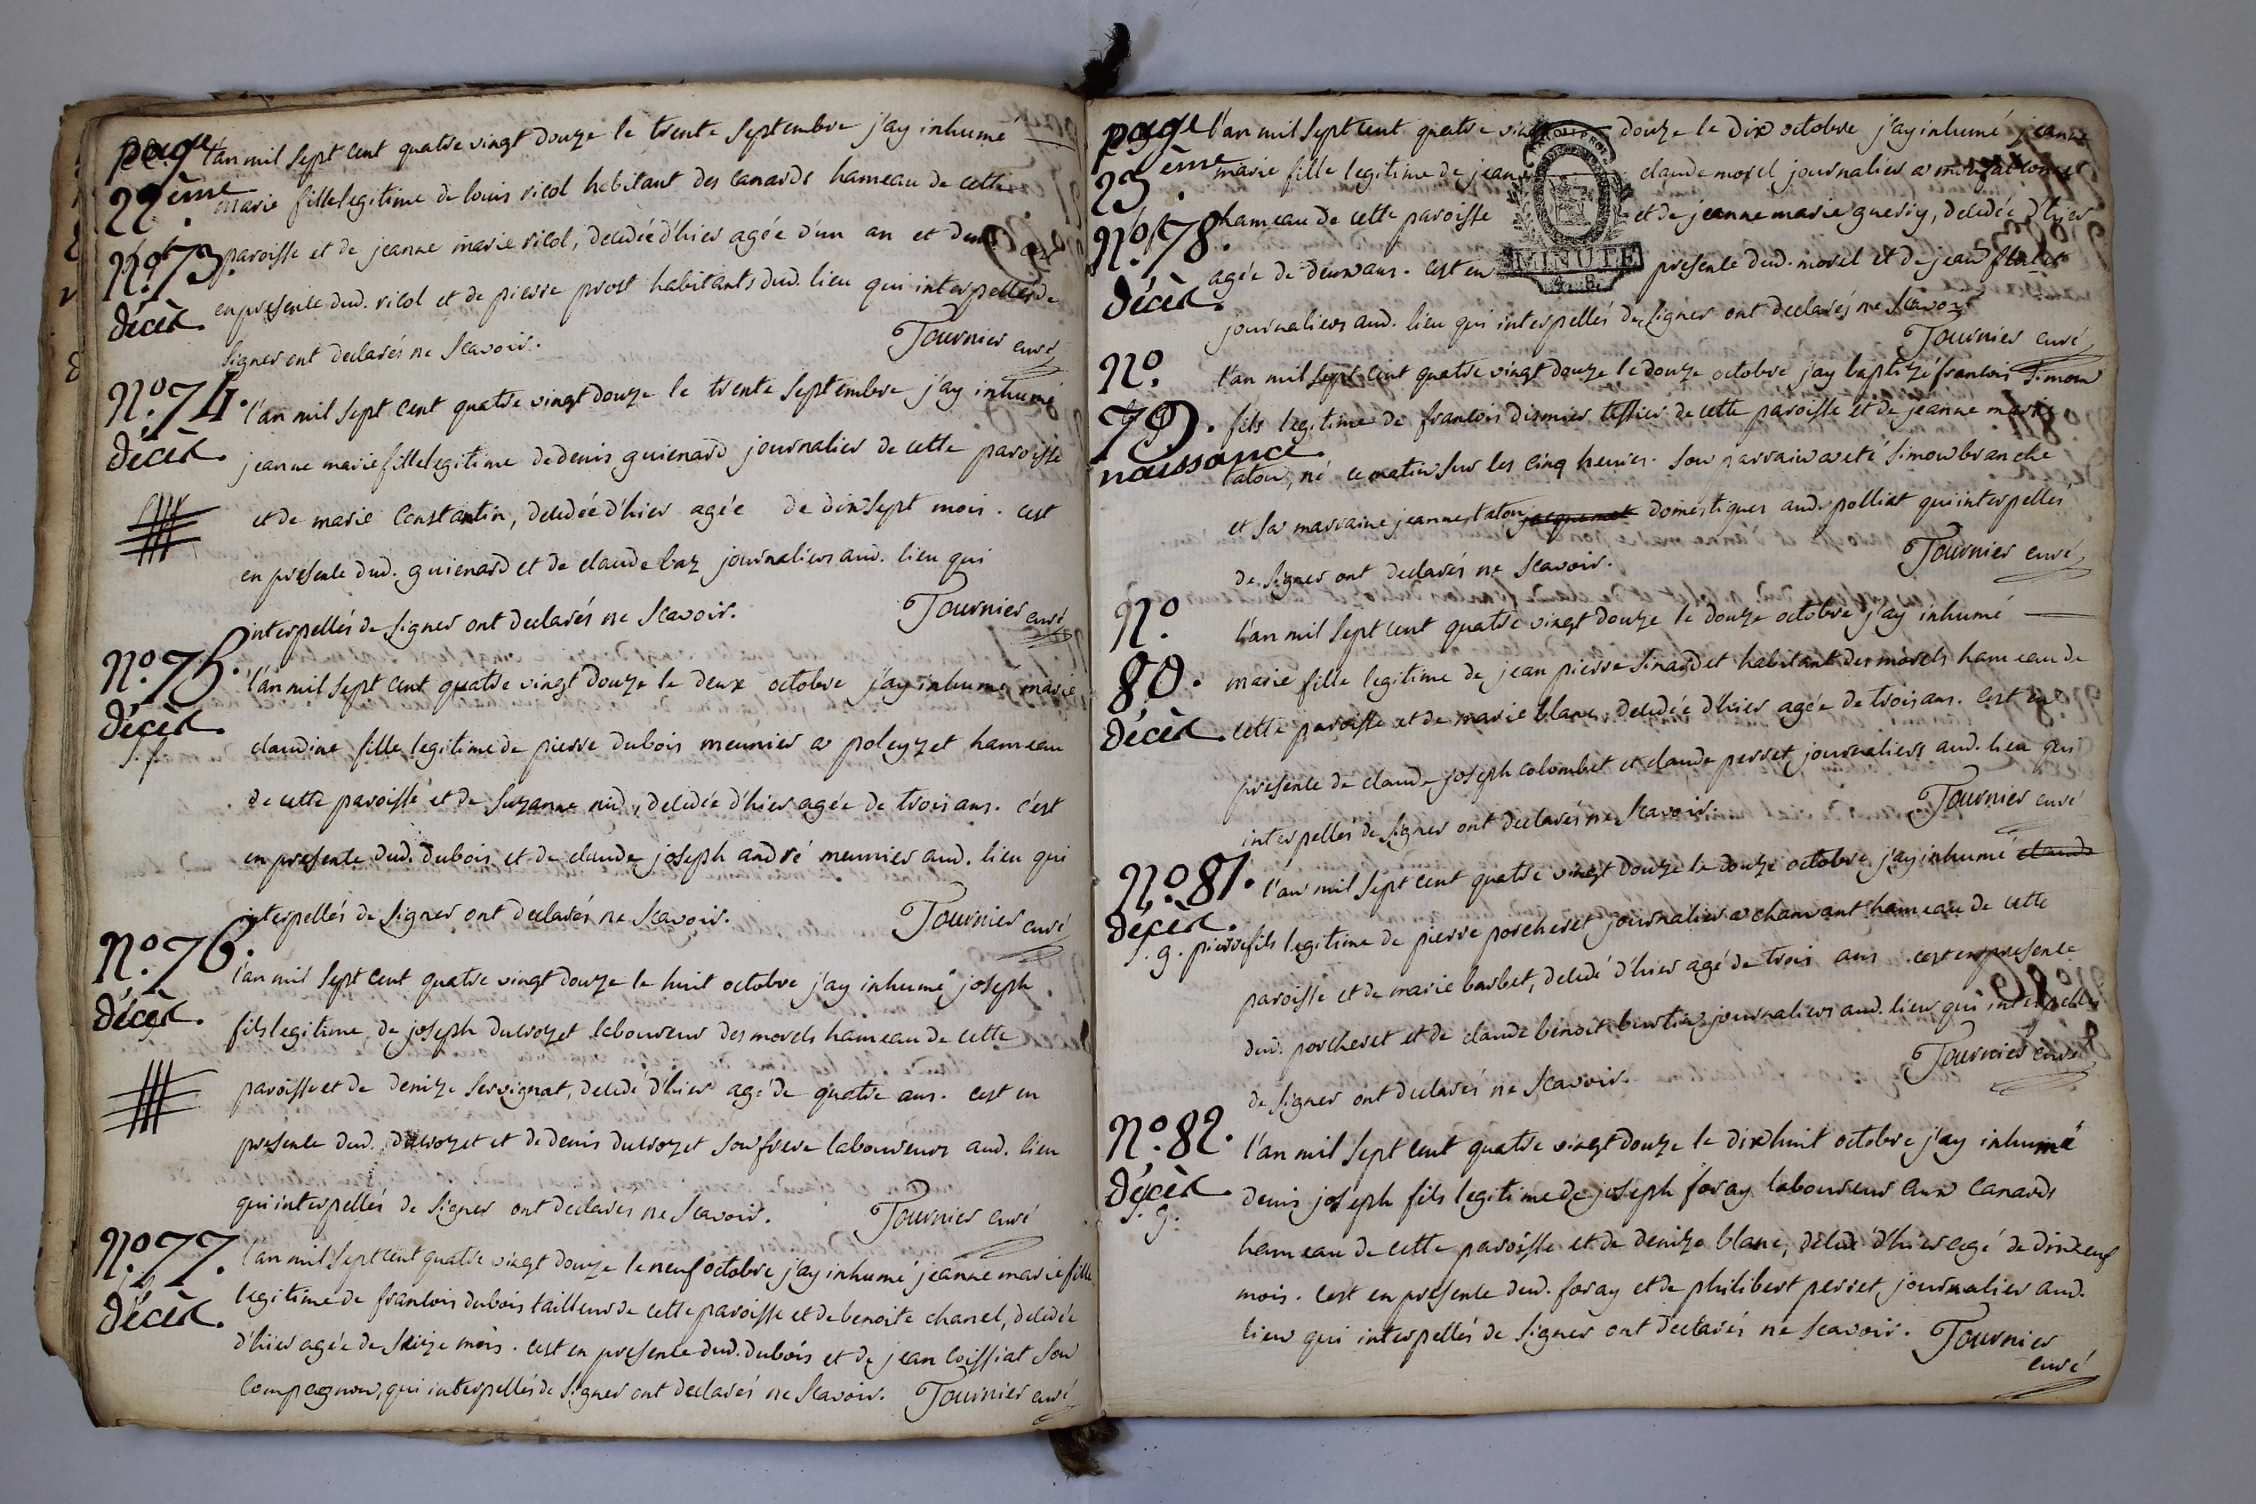 page
22ème
N.º 73.
décèd.
l'an mil sept cent quatre vingt douze le trente septembre j'ay inhumé
marie fille legitime de louis ricol habitant des canards hameau de cette
paroisse et de jeanne marie ricol, decedée d'hier agée d'un an et demi
en presence dud. ricol et de pierre prost habitants dud. lieu qui interpellés de
signer ont declarés ne scavoir. Tournier curé
N.º 74.
décèd.
l'an mil sept cent quatre vingt douze le trente septembre j'ay inhumé
jeanne marie fille legitime de denis guienard journalier de cette paroisse
et de marie constantin, decedée d'hier agée de dix sept mois. c'est
en presence dud. guienard et de claude baz journaliers aud. lieu qui
interpellés de signer ont declarés ne scavoir. Tournier curé
N.º 75.
décèd.
l'an mil sept cent quatre vingt douze le deux octobre j'ay inhumé marie
claudine fille legitime de pierre dubois meunier a poleyzet hameau
de cette paroisse et de suzanne nid, decedée d'hier agée de trois ans. c'est
en presence dud. dubois et de claude joseph andré meunier aud. lieu qui
interpellés de signer ont declarés ne scavoir. Tournier curé
N.º 76.
décèd.
l'an mil sept cent quatre vingt douze le huit octobre j'ay inhumé joseph
fils legitime de joseph ducrozet laboureur des morels hameau de cette
paroisse et de denize servignat, decedé d'hier agé de quatre ans. c'est en
presence dud. ducrozet et de denis ducrozet son frere laboureurs aud. lieu
qui interpellés de signer ont declarés ne scavoir. Tournier curé
N.º 77.
décèd.
l'an mil sept cent quatre vingt douze le neuf octobre j'ay inhumé jeanne marie fille
legitime de francois dubois tailleur de cette paroisse et de benoite chanel, decedée
d'hier agée de seize mois. c'est en presence dud. dubois et de jean loissiat son
compagnon, qui interpellés de signer ont declarés ne scavoir. Tournier curé
page
23ème
N.º 78.
décèd.
l'an mil sept cent quatre vingt douze le dix octobre j'ay inhumé jeanne
marie fille legitime de jean claude morel journalier a
hameau de cette paroisse et de jeanne marie guerry, decedée d'hier
MINUTE
agée de deux ans. c'est en presence dud. morel et de jean
journaliers aud. lieu qui interpellés de signer ont declarés ne scavoir
Tournier curé
N.º
79.
naissance.
l'an mil sept cent quatre vingt douze le douze octobre j'ay baptizé francois simon
fils legitime de francois dismier tissier de cette paroisse et de jeanne marie
taton, né ce matin sur les cinq heures. son parrain a eté simon branche
et sa marraine jeanne taton jacquemet domestiques aud. polliat qui interpellés
de signer ont declarés ne scavoir. Tournier curé
N.º
80.
décèd.
l'an mil sept cent quatre vingt douze le douze octobre j'ay inhumé
marie fille legitime de jean pierre sirandet habitant des morels hameau de
cette paroisse et de marie blanc, decedée d'hier agée de trois ans. c'est en
presence de claude joseph colombet et claude perret journaliers aud. lieu qui
interpellés de signer ont declarés ne scavoir. Tournier curé
N.º 81.
décèd.
l'an mil sept cent quatre vingt douze le douze octobre j'ay inhumé claude
pierre fils legitime de pierre porcheret journalier a chavant hameau de cette
paroisse et de marie barbet, decedé d'hier agé de trois ans. c'est en presence
dud. porcheret et de claude benoit burtin journaliers aud. lieu qui interpellés
de signer ont declarés ne scavoir. Tournier curé
N.º 82.
décèd.
l'an mil sept cent quatre vingt douze le dix huit octobre j'ay inhumé
denis joseph fils legitime de joseph foray laboureur aux canards
hameau de cette paroisse et de denize blanc, decedé d'hier agé de dixneuf
mois. c'est en presence dud. foray et de philibert perret journalier aud.
lieu qui interpellés de signer ont declarés ne scavoir. Tournier
curé